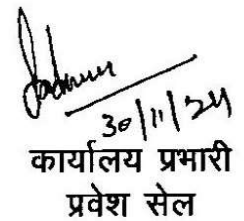 30/11/24
कार्यालय प्रभारी
प्रवेश सेल